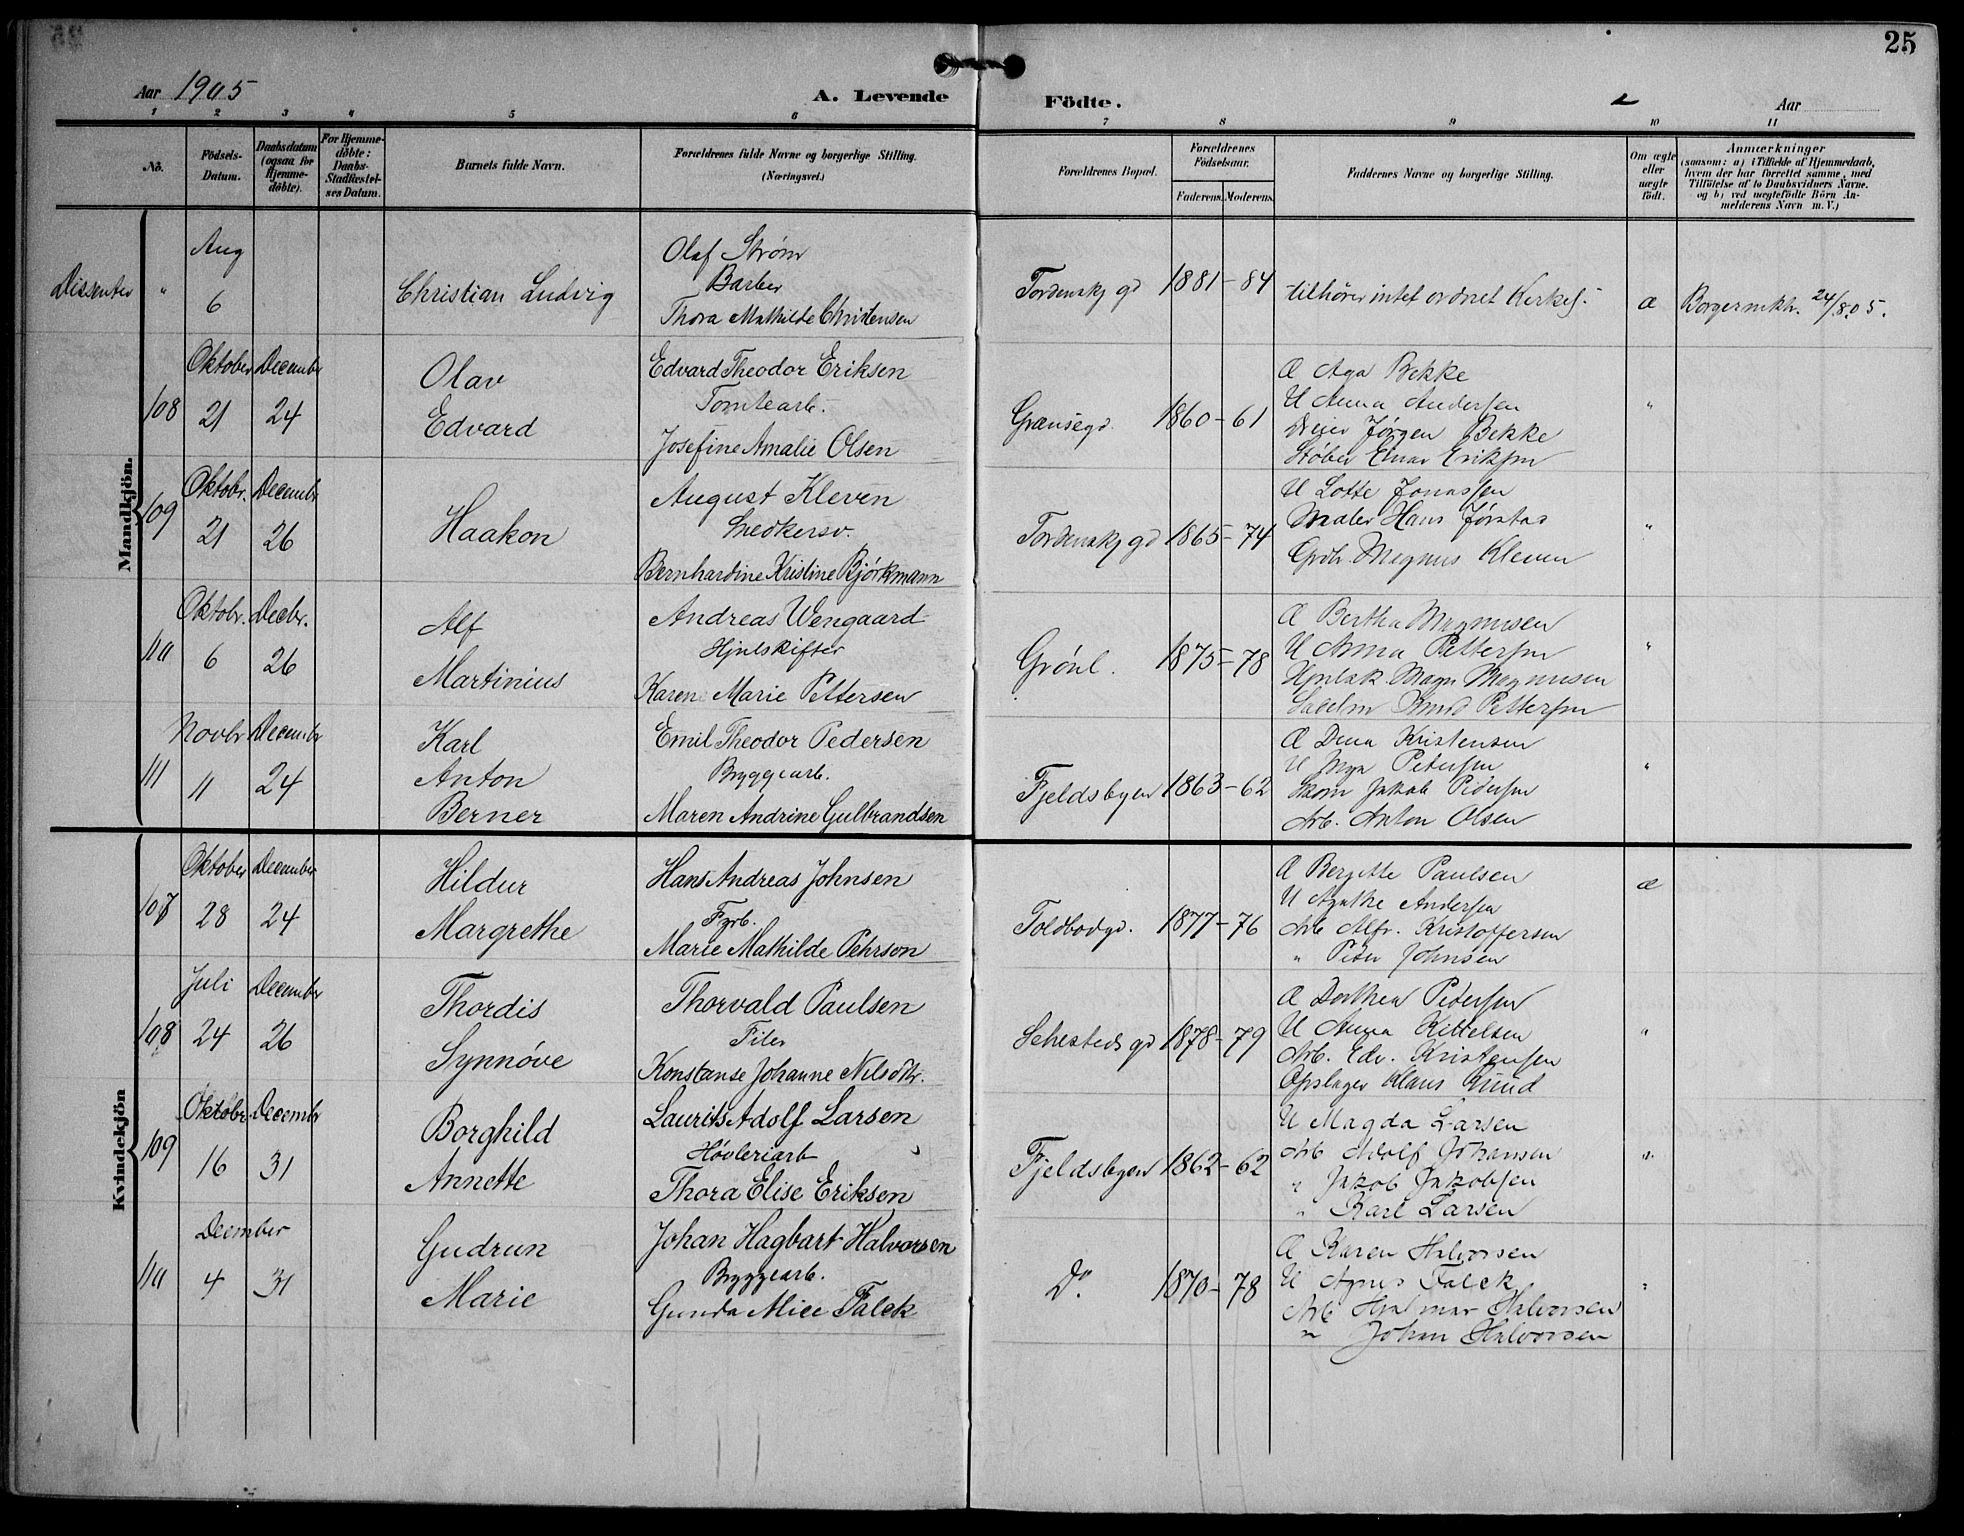 25
Aar 1905
A. Levende Födte.
Aar
1 2 3 4 5 6 7 8 9 10 11
No.
Födsels-Datum.
Daabsdatum (ogsaa for Hjemmedöbte).
For Hjemmedöbte: Daabs-Stadfæstelses Datum.
Barnets fulde Navn.
Forældrenes fulde Navne og borgerlige Stilling.
(Næringsvei.)
Forældrenes Bopæl.
Forældrenes Födselsaar.
Faderens. Moderens.
Faddernes Navne og borgerlige Stilling.
Om ægte eller uægte födt.
Anmærkninger
(saasom: a) i Tilfælde af Hjemmedaab,
hvem der har forrettet samme, med
Tilföielse af to Daabsvidners Navne.
og b) ved uægtefödte Börn An-
melderens Navn m. V.)
Mandkjön.
Dissenter " Aug 6
Christian Ludvig
Olaf Strøm
Barber
Thora Mathilde Christensen
Tordenskj gd 1881-84
tilhører intet ordnet Kirkes.
æ
Borgermktr. 24/8.05.
108 Oktober 21 December 24
Olav
Edvard
Edvard Theodor Eriksen
Tomtearb.
Josefine Amalie Olsen
Grænsegd. 1860-61
Æ Aga Bekke
U Anna Andersen
Jørgen Bekke
Støber Einar Eriksen
"
109 Oktobr. 21 Decembr 26
Haakon
August Kleven
Snedkersv.
Bernhardine Kristine Bjørkmann
Tordenskj gd 1865-74
U Lotte Jonassen
Maler Hans Jørstad
Magnus Kleven
"
110 Oktobr. 6 Decbr. 26
Alf
Martinius
Andreas Wengaard
Hjulskifter
Karen Marie Pettersen
Grønl. 1875-78
Æ Bertha Magnusen
U Anna Pettersen
Hjulsk Magn Magnusen
Knud Pettersen
"
111 Novbr 11 Decembr 24
Karl
Anton
Berner
Emil Theodor Pedersen
Bryggearb.
Maren Andrine Gulbrandsen
Fjeldsbyen 1863-62
Æ Dina Kristensen
U Petersen
Skom Jakob Pedersen
Arb. Anton Olsen
"
Kvindekjön
107 Oktober 28 December 24
Hildur
Margrethe
Hans Andreas Johnsen
Fyrb.
Marie Mathilde Pehrson
Toldbodgd. 1877-76
Æ Bergitte Paulsen
U Agathe Andersen
Arb Alfr. Kristoffersen
" Peter Johnsen
æ
108 Juli 24 December 26
Thordis
Synnöve
Thorvald Paulsen
Filer
Konstanse Johanne Nilsdtr.
Sehesteds gd 1878-79
Æ Dorthea Pedersen
U Anna Kittelsen
Arb. Edv. Kristensen
Opslager Klaus Ruud
"
109 Oktobr. 16 Decembr 31
Borghild
Annette
Laurits Adolf Larsen
Høvleriarb
Thora Elise Eriksen
Fjeldsbyen 1862-62
U Magda Larsen
Arb Adolf Johansen
" Jakob Jakobsen
" Karl Larsen
"
110 December 4 31
Gudrun
Marie
Johan Hagbart Halvorsen
Bryggearb.
Gunda Alice Falck
Do. 1870-78
Æ Karen Halvorsen
U Agnes Falck
Arb Hjalmar Halvorsen
" Johan Halvorsen
"